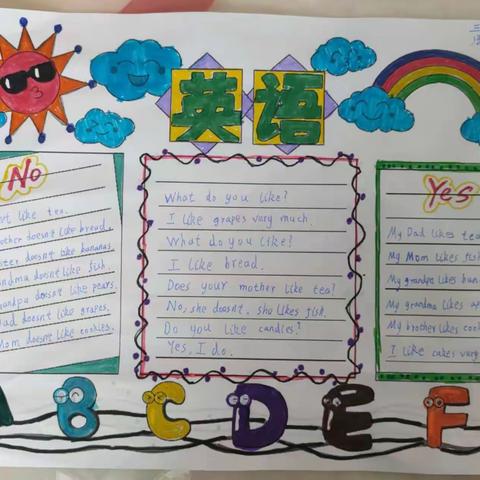 三
英语
No
t like tea.
other doesn't like bread.
ster doesn't like bananas.
ndma doesn't like fish.
andpa doesn't like pears.
ad doesn't like grapes.
Mom doesn't like cookies.
What do you like?
I like grapes vary much.
What do you like?
I like bread.
Does your mother like tea?
No, she doesnt, she likes fish.
Do you like candies?
Yes, I do.
Yes
My Dad likes tea
My Mom likes fis
My grandpa likes ban
My grandma likes ap
My brother likes cook
I like cakes vary
B C D E F